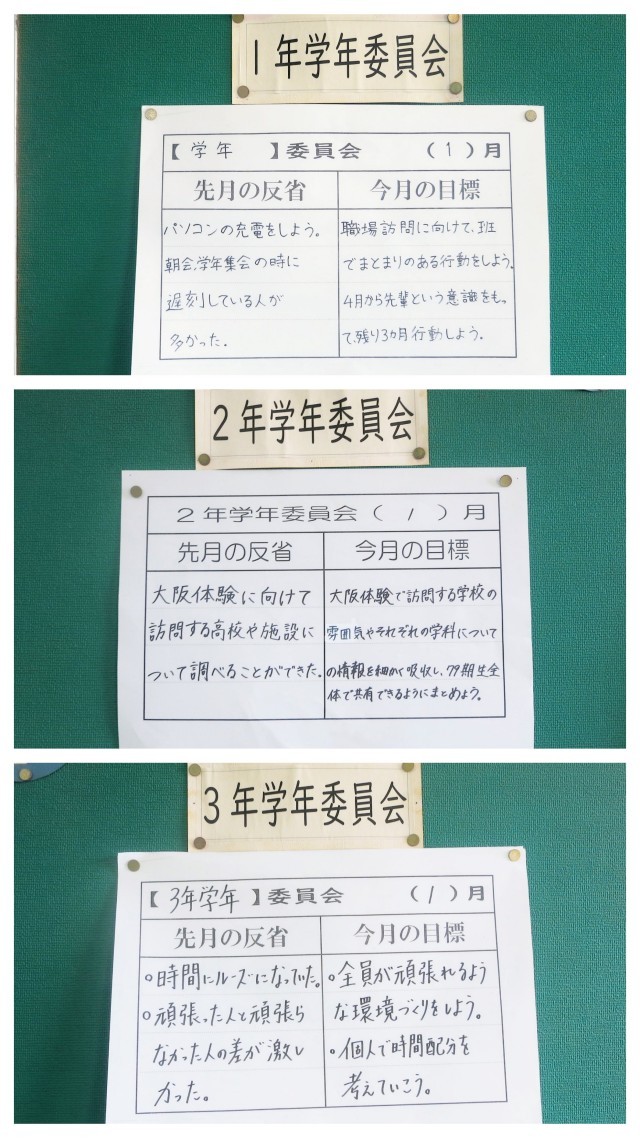 1年学年委員会
【 学年 】委員会 (1)月
先月の反省
今月の目標
パソコンの充電をしよう。
朝会、学年集会の時に
遅刻している人が
多かった。
職場訪問に向けて、班
でまとまりのある行動をしよう。
4月から先輩という意識をもっ
て、残り3カ月行動しよう。
2年学年委員会
2年学年委員会(1)月
先月の反省
今月の目標
大阪体験に向けて
訪問する高校や施設に
ついて調べることができた。
大阪体験で訪問する学校の
雰囲気やそれぞれの学科について
の情報を細かく吸収し、79期生全
体で共有できるようにまとめよう。
3年学年委員会
【 3年学年 】委員会 (1)月
先月の反省
今月の目標
○時間にルーズになっていた。
○頑張った人と頑張ら
なかった人の差が激し
かった。
○全員が頑張れるよう
な環境づくりをしよう。
○個人で時間配分を
考えていこう。